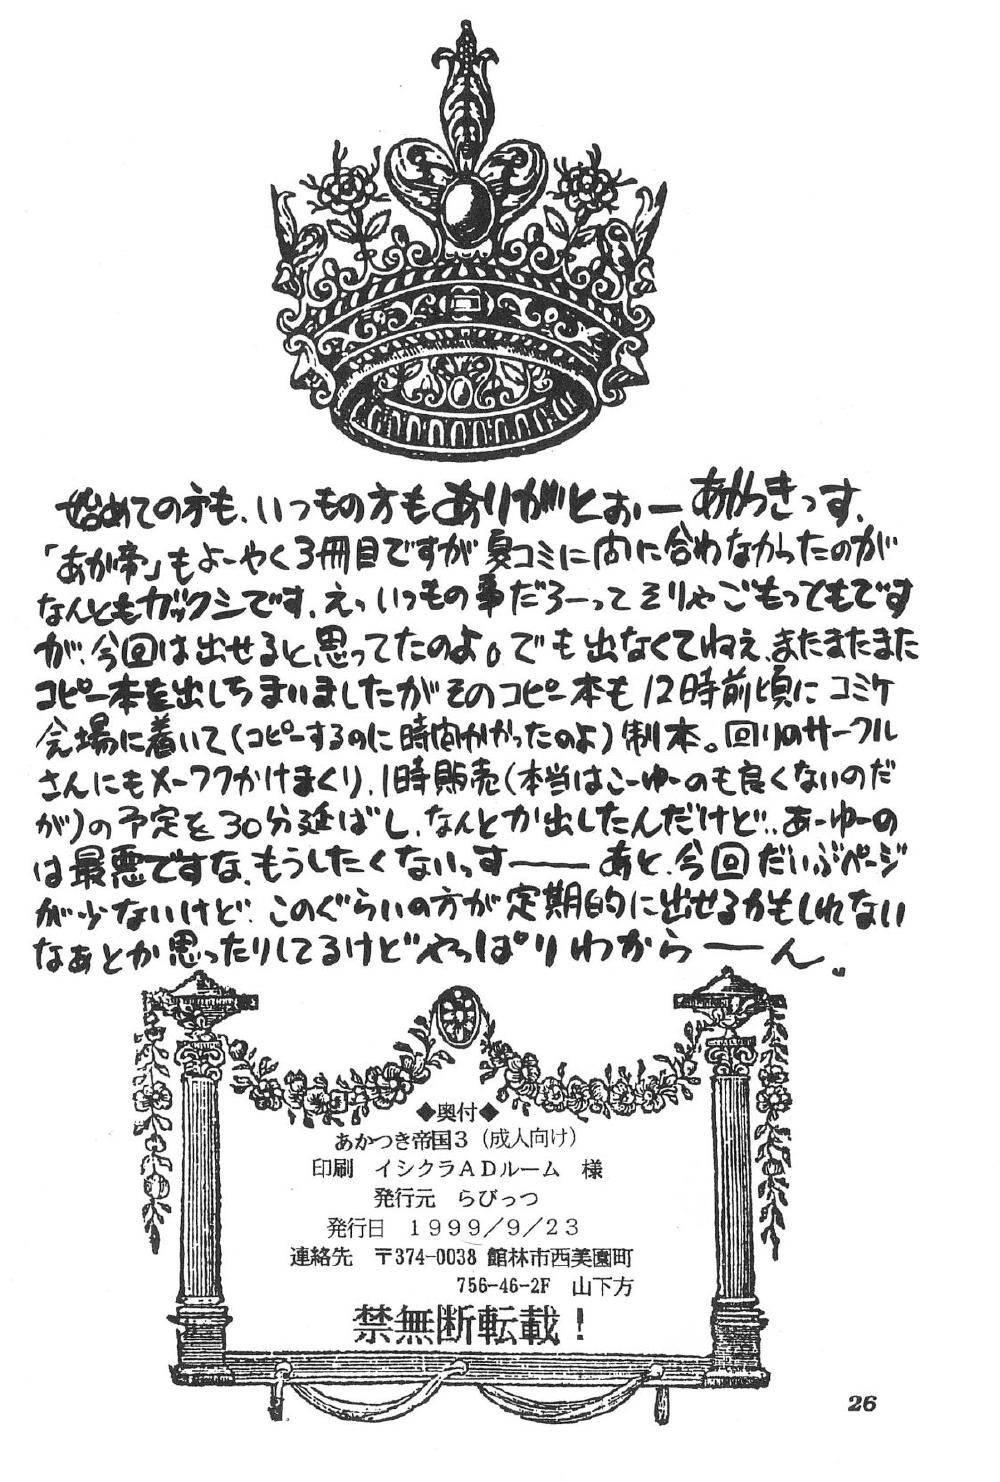 始めての方も、いつもの方もありがとぉーあかつきっす、
「あか帝」もよーやく3冊目ですが夏コミに間に合わなかったのが
なんともガックシです、えっいつもの事だろーってそりゃごもっともです
が、今回は出せると思ってたのよ。でも出なくてねえ、またまたまた
コピー本を出しちまいましたがそのコピー本も12時前頃にコミケ
会場に着いて(コピーするのに時間かかったのよ)制本。回りのサークル
さんにもメーワクかけまくり、1時販売(本当はこーゆーのも良くないのだ
が)の予定を30分延ばし、なんとか出したんだけど、あーゆーの
は最悪ですな、もうしたくないっすーーあと、今回だいぶページ
が少ないけど、このぐらいの方が定期的に出せるかもしれない
なぁとか思ったりしてるけどやっぱりわからーーん。
◆奥付◆
あかつき帝国3(成人向け)
印刷 イシクラADルーム 様
発行元 らびっつ
発行日 1999/9/23
連絡先 〒374-0038 館林市西美園町
756-46-2F 山下方
禁無断転載!
26